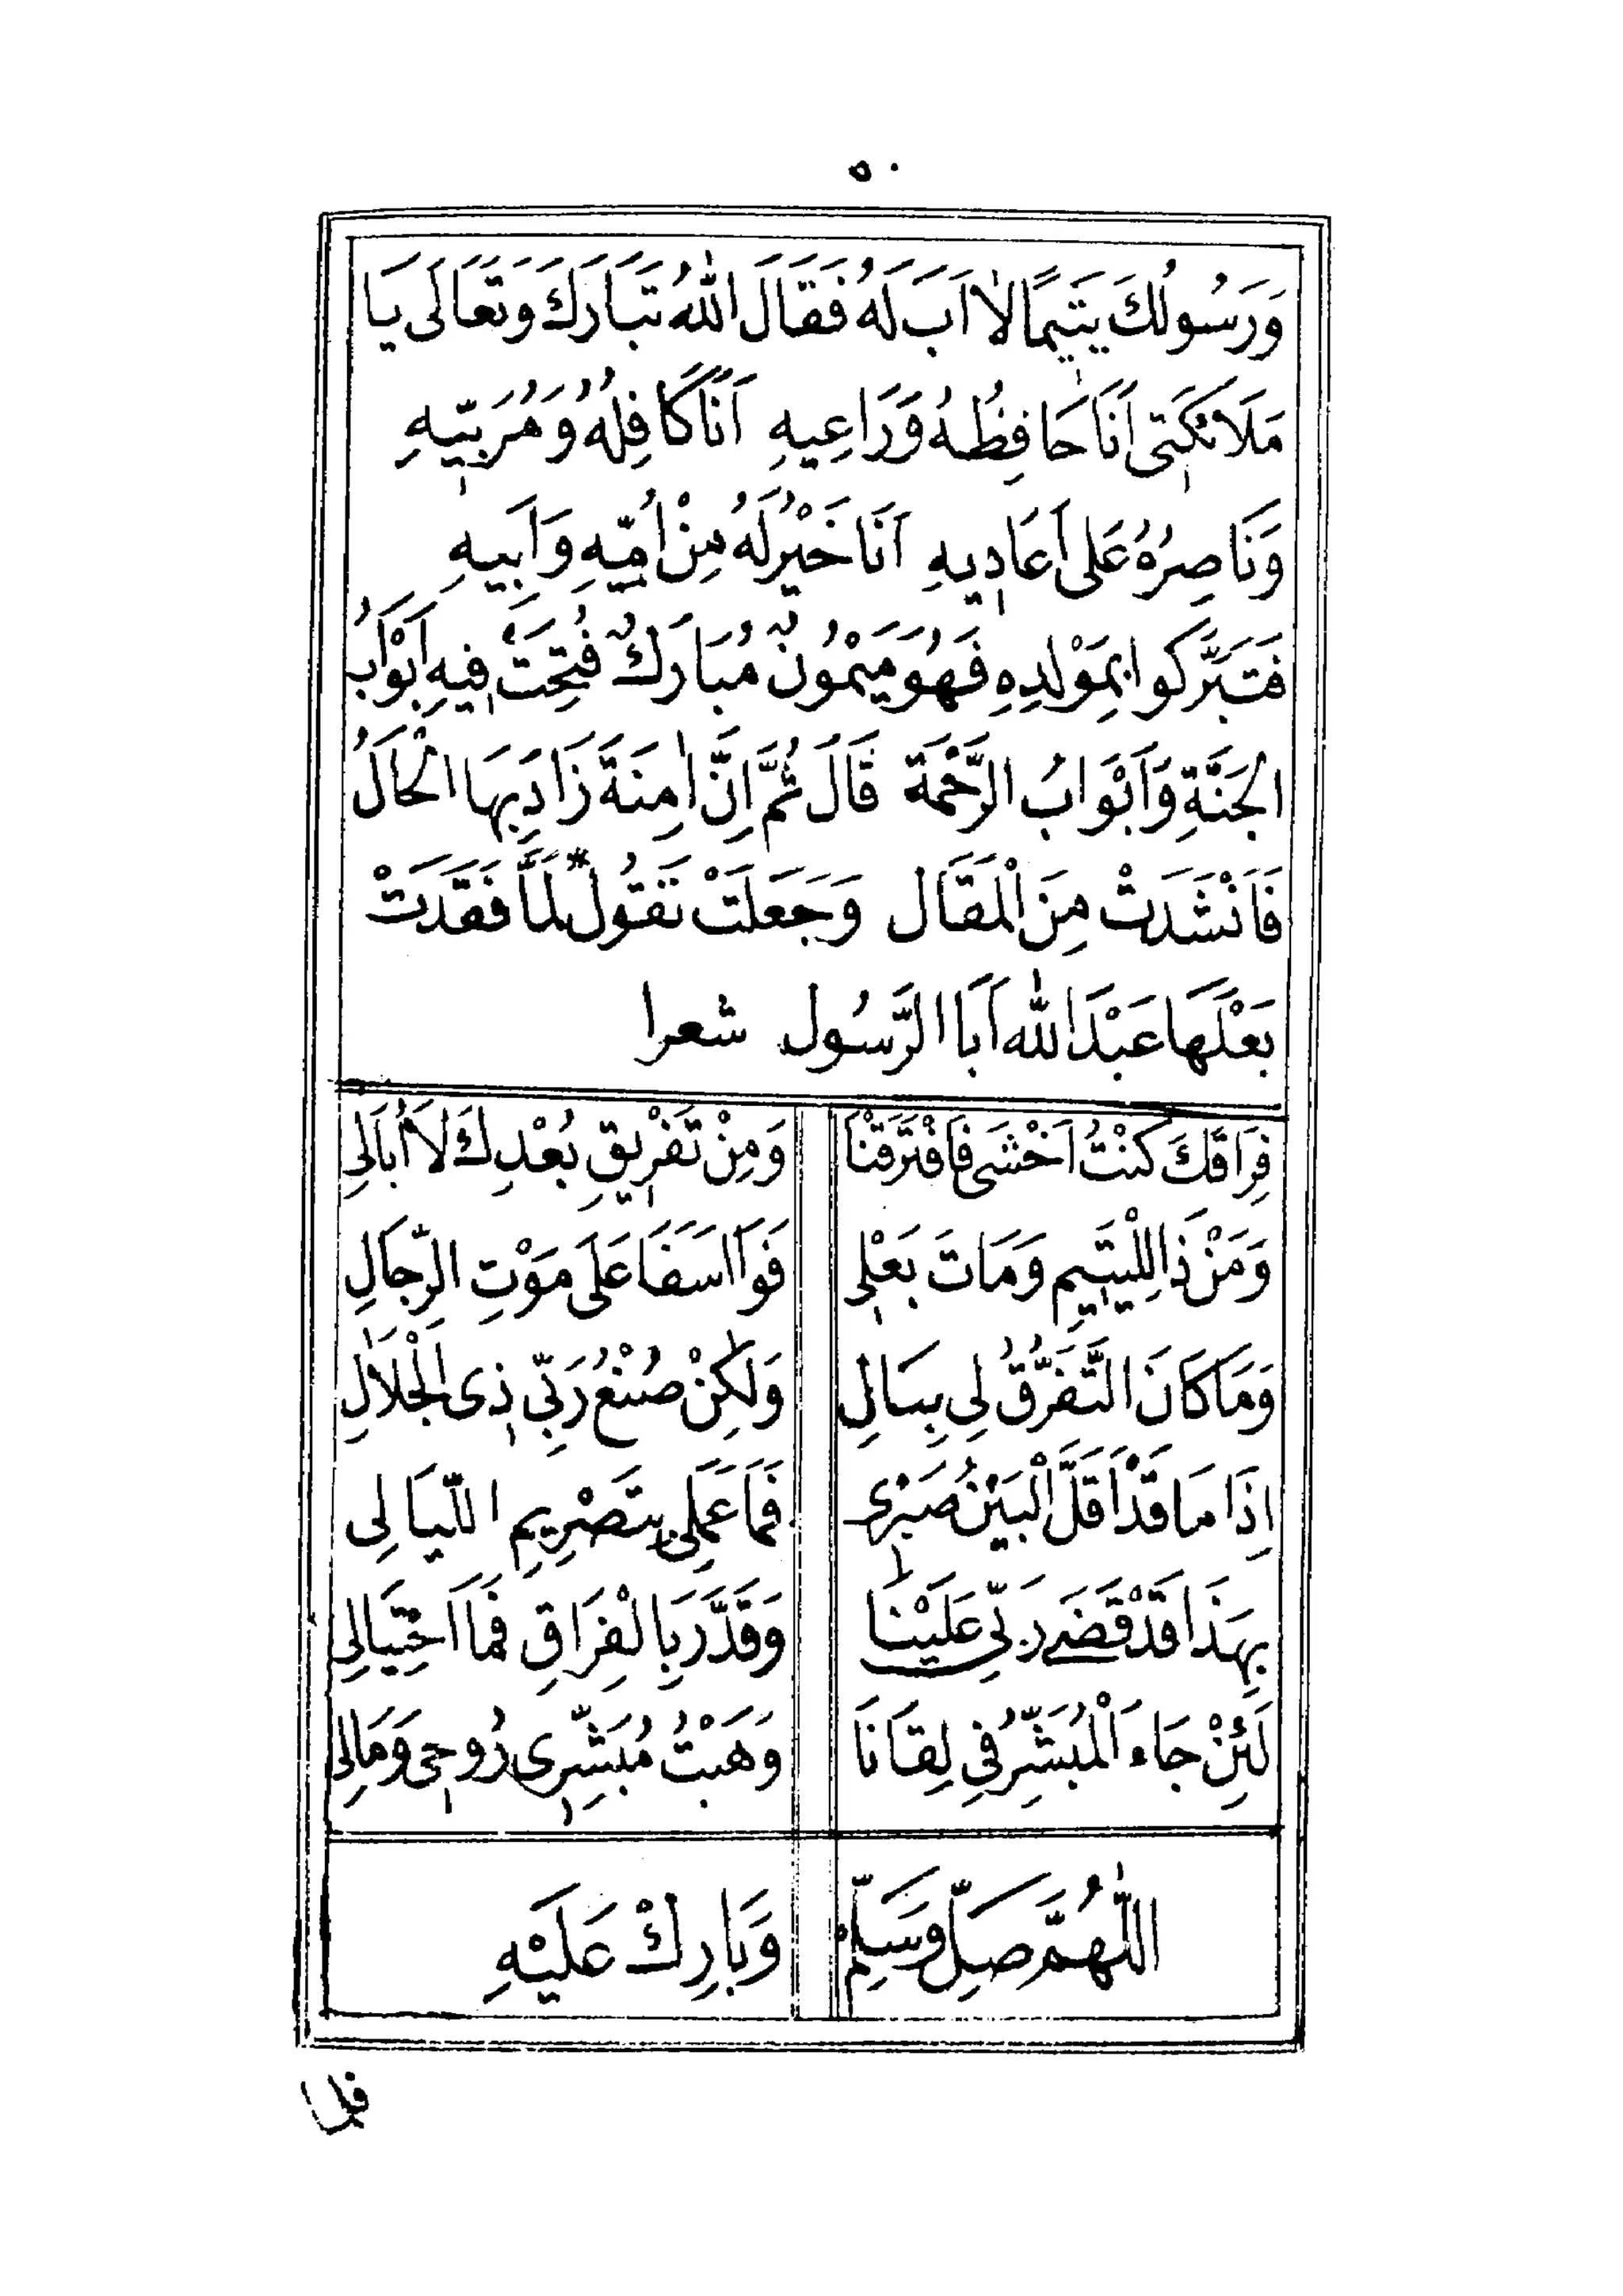 ٥٠
وَرَسُولُكَ يَتِيمًا لَا اَبَ لَهُ فَقَالَ اللّٰهُ تَبَارَكَ وَتَعَالَى يَا
مَلَائِكَتِى اَنَا حَافِظُهُ وَرَاعِيهِ اَنَا كَافِلُهُ وَمُرَبِّيهِ
وَنَاصِرُهُ عَلَى اَعَادِيهِ اَنَا خَيْرٌ لَهُ مِنْ اُمِّهِ وَاَبِيهِ
فَتَبَرَّكُوا بِمَوْلِدِهِ فَهُوَ مَيْمُونٌ مُبَارَكٌ فُتِحَتْ فِيهِ اَبْوَابُ
الْجَنَّةِ وَاَبْوَابُ الرَّحْمَة قَالَ ثُمَّ اِنَّ اٰمِنَةَ زَادَ بِهَا الْحَالُ
فَاَنْشَدَتْ مِنَ الْمَقَال وَجَعَلَتْ تَقُولُ * لَمَّا فَقَدَتْ
بَعْلَهَا عَبْدَ اللّٰه اَبَا الرَّسُول شعرا
فِرَاقَكَ كُنْتُ اَخْشَى فَافْتَرَقْنَا وَمِنْ تَفْرِيقِ بُعْدِكَ لَا اُبَالِى
وَمَنْ ذَا لِلْيَتِيمِ وَمَاتَ بَعْلِى فَوَا اَسَفَا عَلَى مَوْتِ الرِّجَالِ
وَمَا كَانَ التَّفَرُّقُ لِى بِبَالِ وَلٰكِنْ صُنْعُ رَبِّى ذِى الْجَلَالِ
اِذَا مَا قَدْ اَقَلَّ الْبَيْنُ صَبْرِى فَمَا عَمَلِى بِتَصْرِيمِ اللَّيَالِى
بِهَذَا قَدْ قَضَى رَبِّى عَلَيْنَا وَقَدَّرَ بِالْفِرَاقِ فَمَا احْتِيَالِى
لَئِنْ جَاءَ الْمُبَشِّرُ فِى لِقَانَا وَهَبْتُ مُبَشِّرِى رُوحِى وَمَالِى
اللّٰهُمَّ صَلِّ وَسَلِّمْ وَبَارِكْ عَلَيْهِ